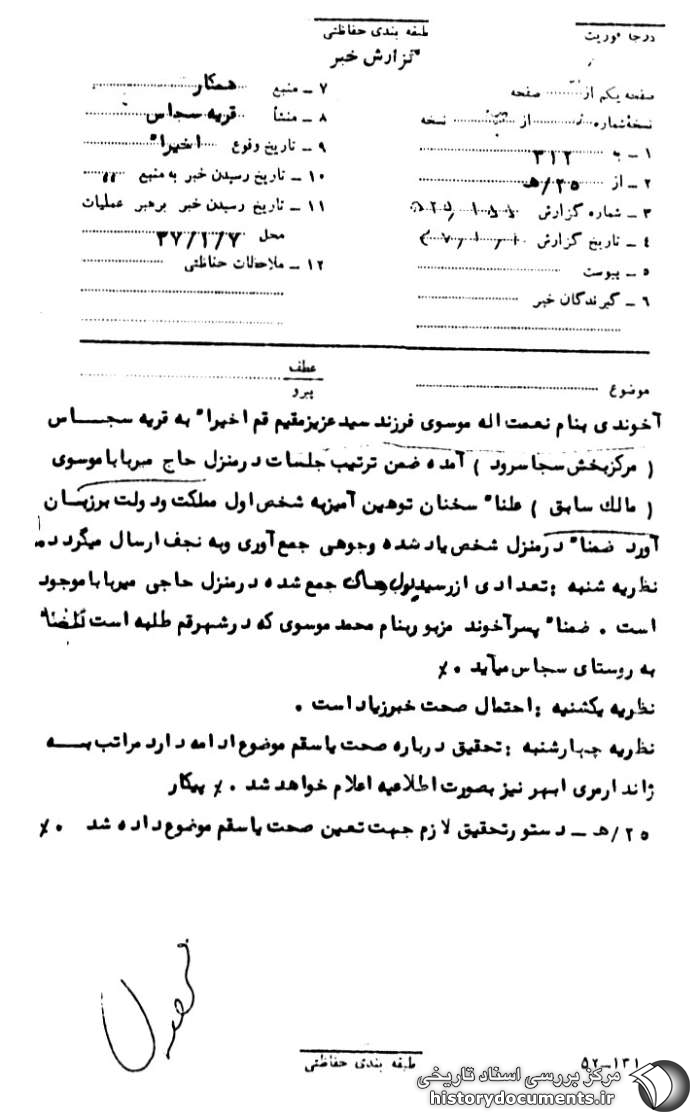 طبقه بندی حفاظتی
گزارش خبر
صفحه یکم از صفحه
نسخه‌شماره از نسخه
۱ – به ۳۱۲
۲ – از ۲۵/هـ
۳ – شماره گزارش
۴ – تاریخ گزارش
۵ – پیوست
۶ – گیرندگان خبر
۷ – منبع همکار
۸ – منشأ قریه سجاس
۹ – تاریخ وقوع اخیراً
۱۰ – تاریخ رسیدن خبر به منبع ״
۱۱ – تاریخ رسیدن خبر برهبر عملیات
محل ۳۷/۲/۷
۱۲ – ملاحظات حفاظتی
موضوع
عطف
پیرو
آخوندی بنام نعمت اله موسوی فرزند سید عزیز مقیم قم اخیراً به قریه سجاس
( مرکز بخش سجاسرود ) آمده ضمن ترتیب جلسات در منزل حاج میربابا موسوی
( مالک سابق ) علناً سخنان توهین آمیز به شخص اول مملکت و دولت بر زبان
آورد ضمناً در منزل شخص یاد شده وجوهی جمع آوری و به نجف ارسال میگردد
نظریه شنبه : تعدادی از رسید پول های جمع شده در منزل حاجی میربابا موجود
است . ضمناً پسر آخوند مزبور بنام محمد موسوی که در شهر قم طلبه است
به روستای سجاس میآید .٪
نظریه یکشنبه : احتمال صحت خبر زیاد است .
نظریه چهارشنبه : تحقیق درباره صحت یا سقم موضوع ادامه دارد مراتب به
ژاندارمری ابهر نیز بصورت اطلاعیه اعلام خواهد شد .٪ پیکار
۲۵/هـ – دستور تحقیق لازم جهت تعین صحت یا سقم موضوع داده شد .٪
طبقه بندی حفاظتی
۵۲–۱۳۱
مرکز بررسی اسناد تاریخی
historydocuments.ir